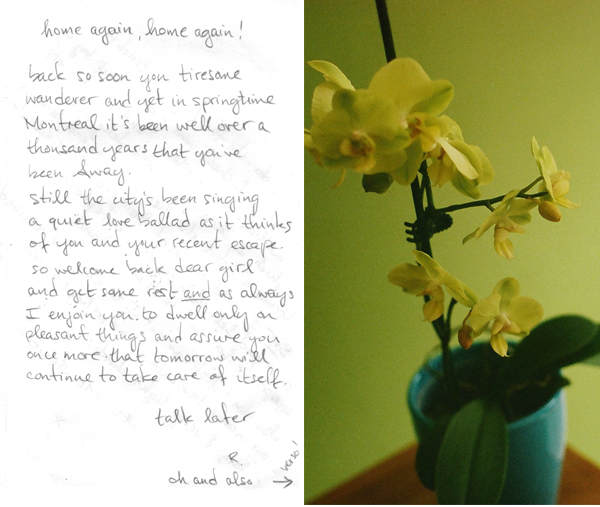 home again, home again!
back so soon you tiresome
wanderer and yet in springtime
Montreal it's been well over a
thousand years that you've
been away.
still the city's been singing
a quiet love ballad as it thinks
of you and your recent escape.
so welcome back dear girl
and get some rest and as always
I enjoin you to dwell only on
pleasant things and assure you
once more that tomorrow will
continue to take care of itself.
talk later
R.
oh and also →
verso!